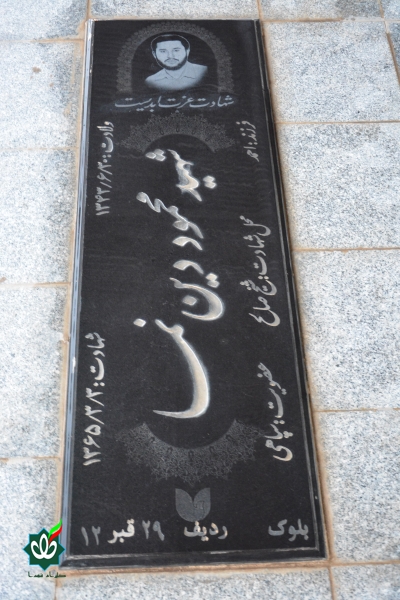 شهادت عزت ابدیست
شهید محمود دین نما
فرزند: احمد
ولادت: ۱۳۴۳/۶/۳۰
محل شهادت: شیخ صالح
شهادت: ۱۳۶۵/۳/۳
عضویت: سپاهی
بلوک ردیف ۲۹ قبر ۱۲